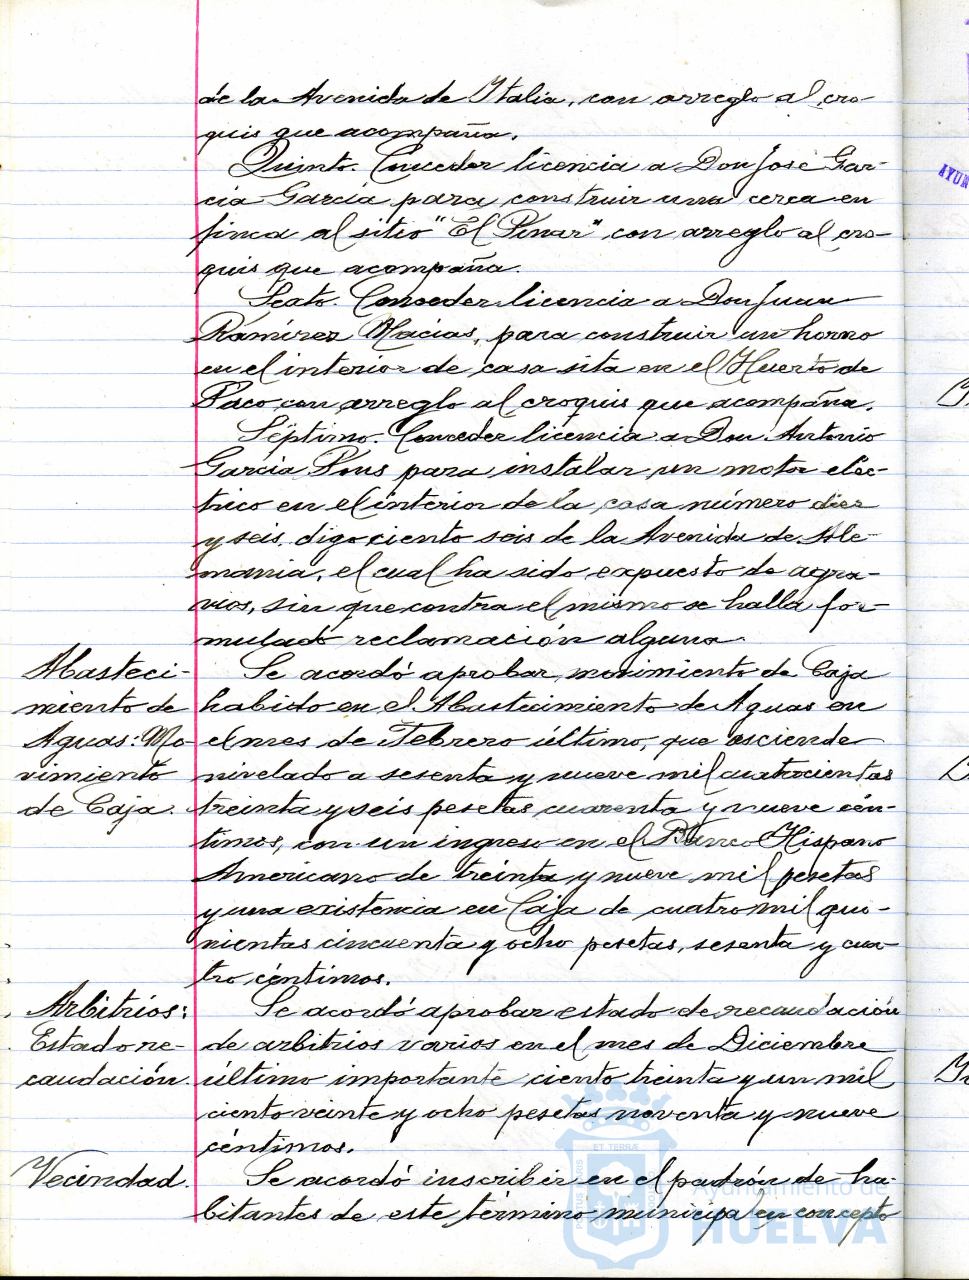 de la Avenida de Italia, con arreglo al cro-
quis que acompaña.
Quinto. Conceder licencia a Don José Gar-
cía García para construir una cerca en
finca al sitio "El Pinar" con arreglo al cro-
quis que acompaña.
Sexto. Conceder licencia a Don Juan
Ramírez Macías, para construir un horno
en el interior de casa sita en el Huerto de
Paco con arreglo al croquis que acompaña.
Séptimo. Conceder licencia a Don Antonio
García Pons para instalar un motor eléc-
trico en el interior de la casa número diez
y seis, digo ciento seis de la Avenida de Ale-
mania, el cual ha sido expuesto de agra-
vios, sin que contra el mismo se halla for-
mulado reclamación alguna.
Abasteci-
miento de
Aguas: Mo-
vimiento
de Caja.
Se acordó aprobar, movimiento de Caja
habido en el Abastecimiento de Aguas en
el mes de Febrero último, que asciende
nivelado a sesenta y nueve mil cuatrocientas
treinta y seis pesetas cuarenta y nueve cén-
timos, con un ingreso en el Banco Hispano
Americano de treinta y nueve mil pesetas
y una existencia en Caja de cuatro mil qui-
nientas cincuenta y ocho pesetas, sesenta y cua-
tro céntimos.
Arbitrios:
Estado re-
caudación.
Se acordó aprobar estado de recaudación
de arbitrios varios en el mes de Diciembre
último importante ciento treinta y un mil
ciento veinte y ocho pesetas noventa y nueve
céntimos.
Vecindad.
Se acordó inscribir en el padrón de ha-
bitantes de este término municipal en concepto
Ayuntamiento de
HUELVA
ET TERRÆ